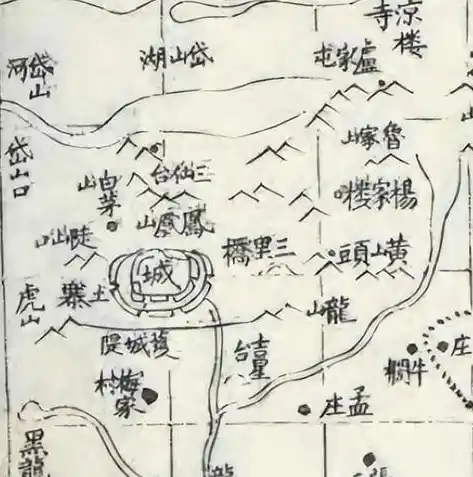 涼楼寺
盧家屯
岱山湖
岱山河
魯家山
岱山口
三仙台
白茅山
楊家楼
鳳凰山
陡山口
三里橋
黄山頭
城
土寨
虎山
龍山
護城堤
吉星台
梅家村
孟庄
庄
黑龍
龍